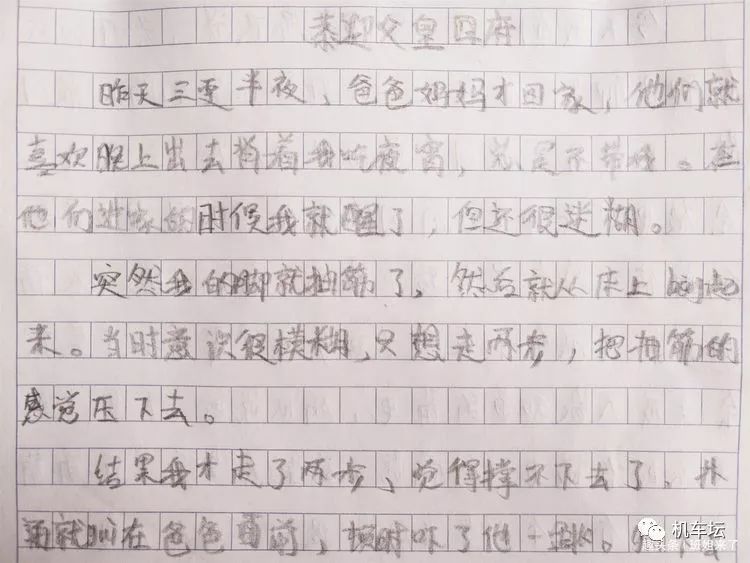 恭迎父皇回府
昨天三更半夜，爸爸妈妈才回家，他们就
喜欢晚上出去背着我吃夜宵，总是不带我。在
他们进家的时候我就醒了，但还很迷糊。
突然我的脚就抽筋了，然后就从床上蹦起
来。当时意识很模糊，只想走两步，把抽筋的
感觉压下去。
结果我才走了两步，觉得撑不下去了，扑
通就叫在爸爸面前，顿时吓了他一跳。
机车坛
头条/班姐来了